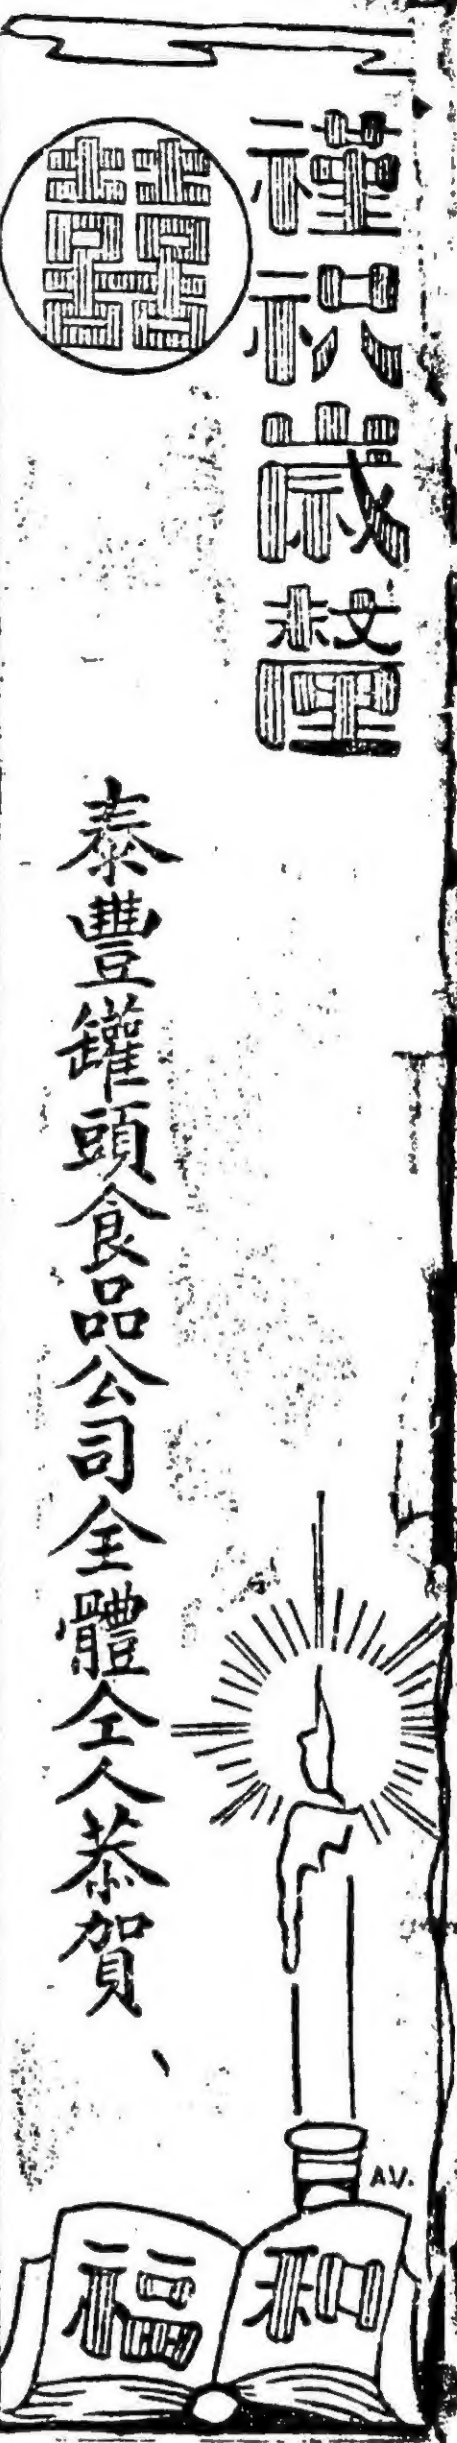 謹祝歲釐
囍
泰豐罐頭食品公司全體仝人恭賀
A.V.
和福